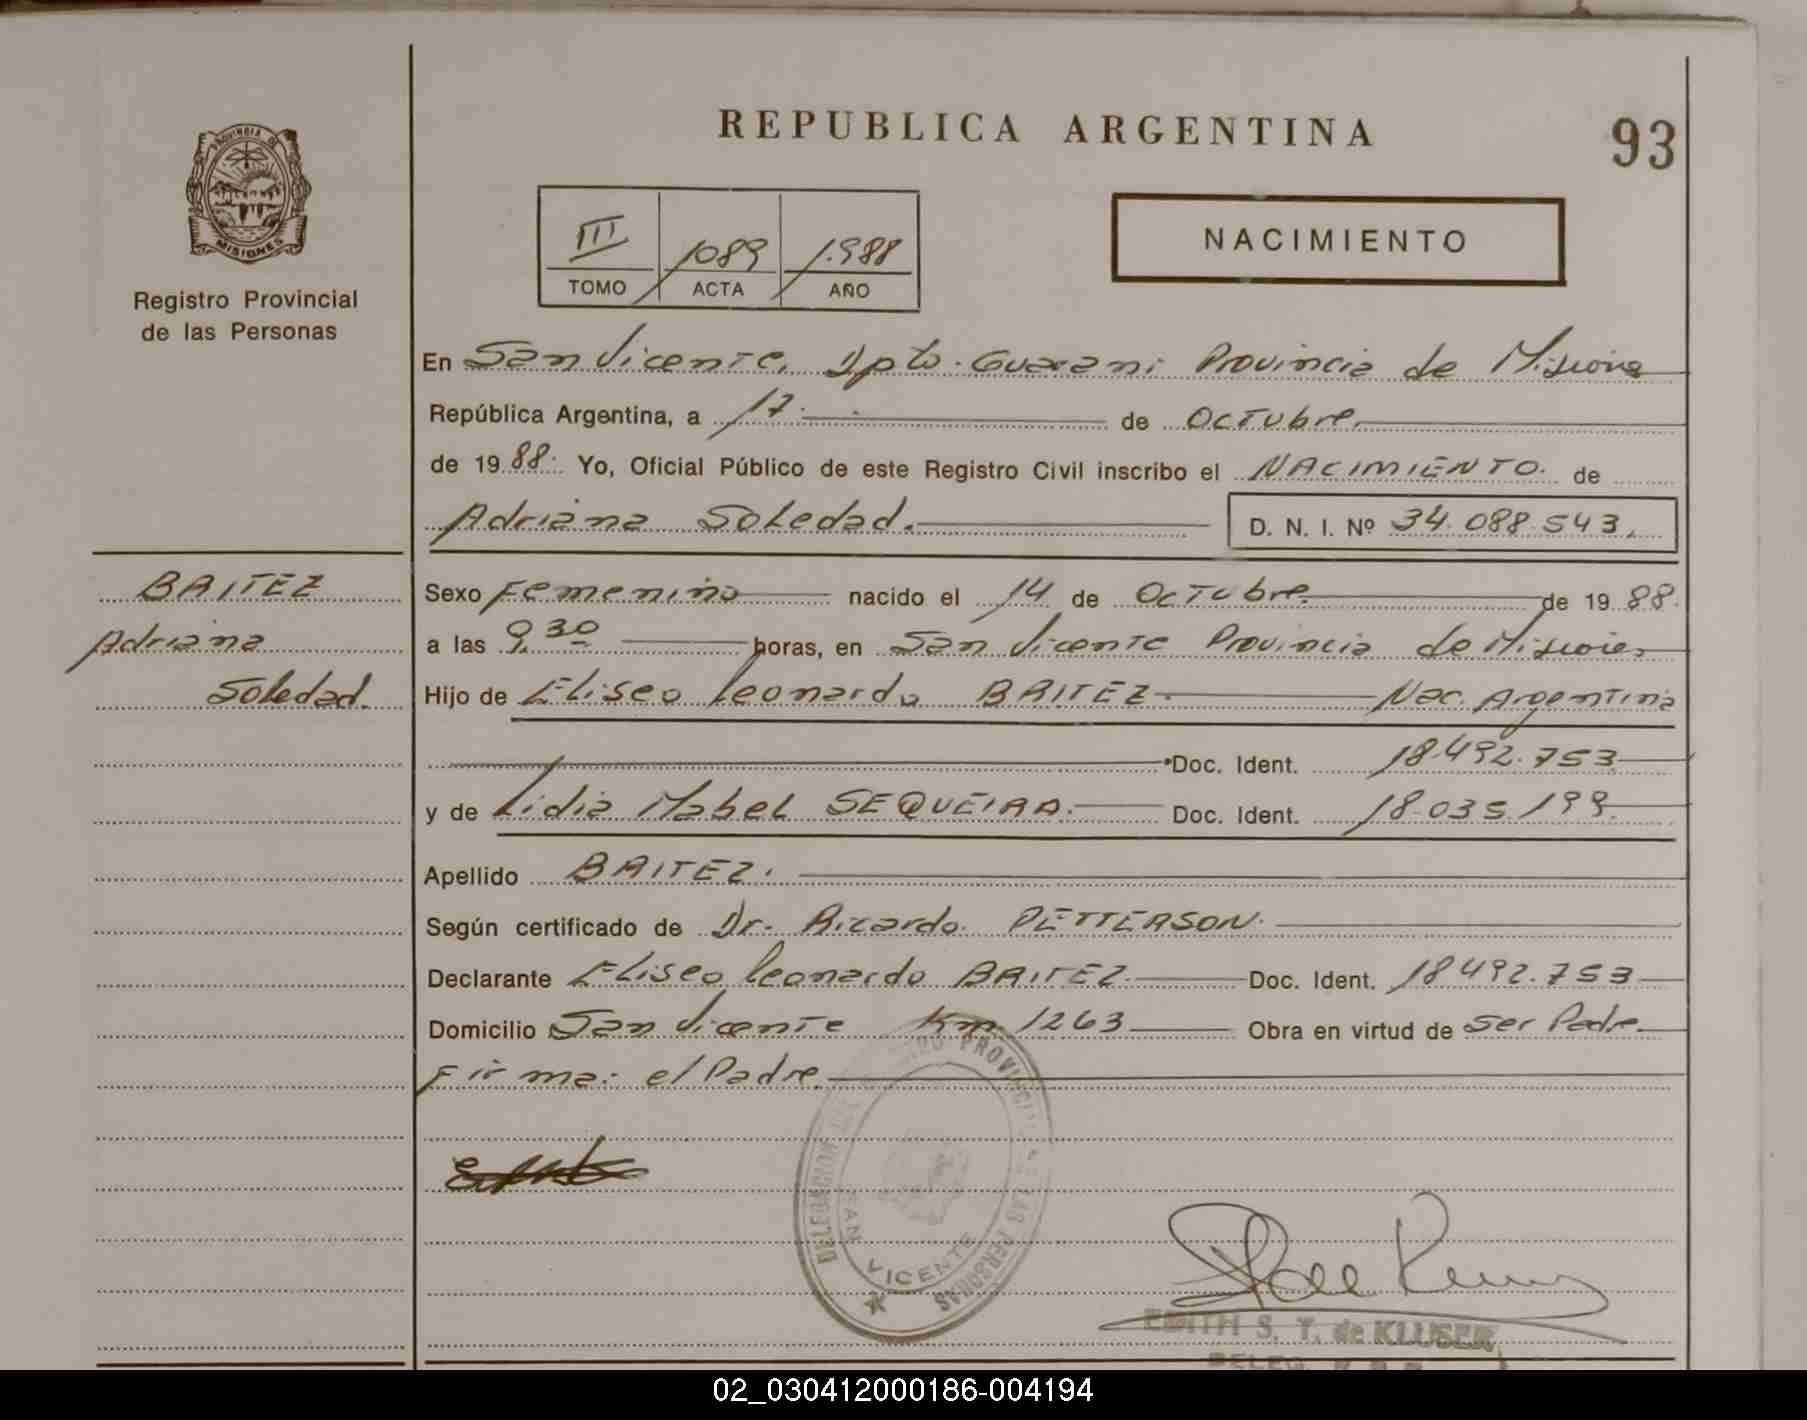 REPUBLICA ARGENTINA
93
PROVINCIA DE
MISIONES
Registro Provincial
de las Personas
III 1089 1.988
TOMO ACTA AÑO
NACIMIENTO
En San Vicente, Dpto. Guarani Provincia de Misiones
República Argentina, a 17. de Octubre.
de 19 88. Yo, Oficial Público de este Registro Civil inscribo el NACIMIENTO. de
Adriana Soledad. D. N. I. Nº 34.088.543.
BAITEZ
Adriana
Soledad.
Sexo Femenino nacido el 14 de Octubre. de 19 88.
a las 9,30 horas, en San Vicente Provincia de Misiones
Hijo de Eliseo Leonardo BAITEZ. Nac. Argentina
Doc. Ident. 18.492.753
y de Lidia Mabel SEQUEIRA. Doc. Ident. 18.035.199.
Apellido BAITEZ.
Según certificado de Dr. Ricardo PETTERSON.
Declarante Eliseo Leonardo BAITEZ. Doc. Ident. 18492.753
Domicilio San Vicente Km. 1263 Obra en virtud de ser Padre.
Firma: el Padre.
DELEGACION PROVINCIAL LAS PERSONAS
SAN VICENTE
EDITH S. T. de KLUSER
DELEG.
02_030412000186-004194